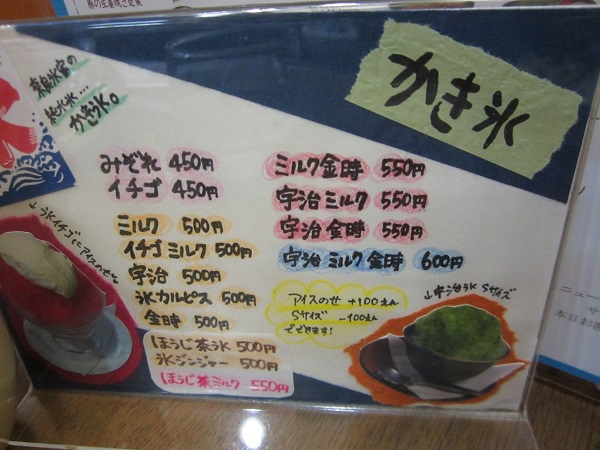 かき氷
奈良氷室の
純氷氷…
かき氷。
みぞれ 450円
イチゴ 450円
ミルク 500円
イチゴミルク 500円
宇治 500円
氷カルピス 500円
金時 500円
ほうじ茶氷 500円
氷ジンジャー 500円
ほうじ茶ミルク 550円
ミルク金時 550円
宇治ミルク 550円
宇治金時 550円
宇治ミルク金時 600円
アイスのせ +100えん
Sサイズ -100えん
でできます!
↓宇治氷 Sサイズ
↓氷イチゴにアイスのせ
ニュー
サ
本日お酒